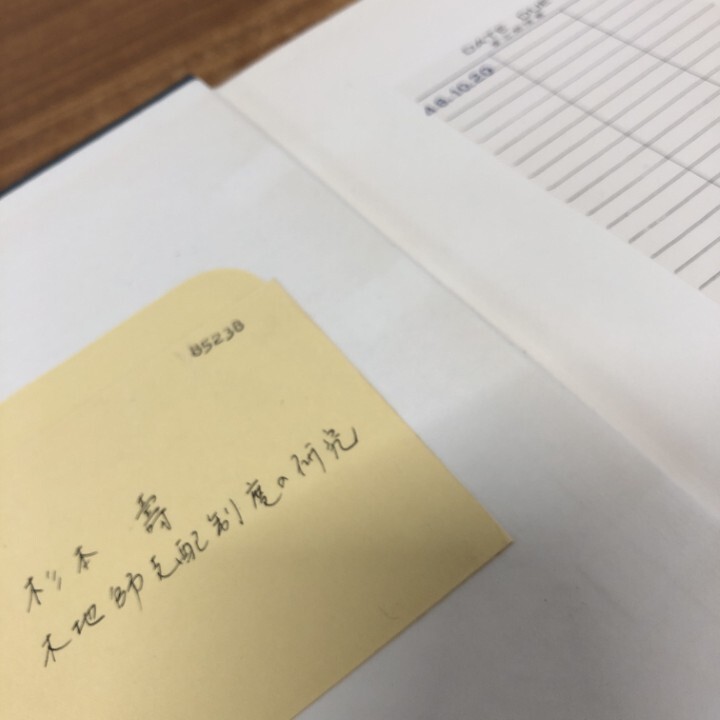 85238
杉本 壽
木地師支配制度の研究
DATE DUE
48.10.20